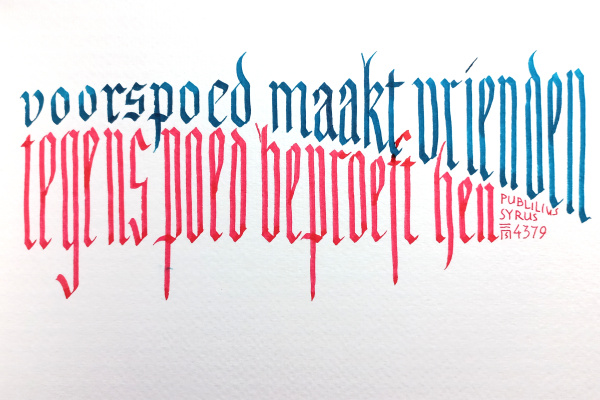 voorspoed maakt vrienden
tegenspoed beproeft hen
PUBLILIUS
SYRUS
4379